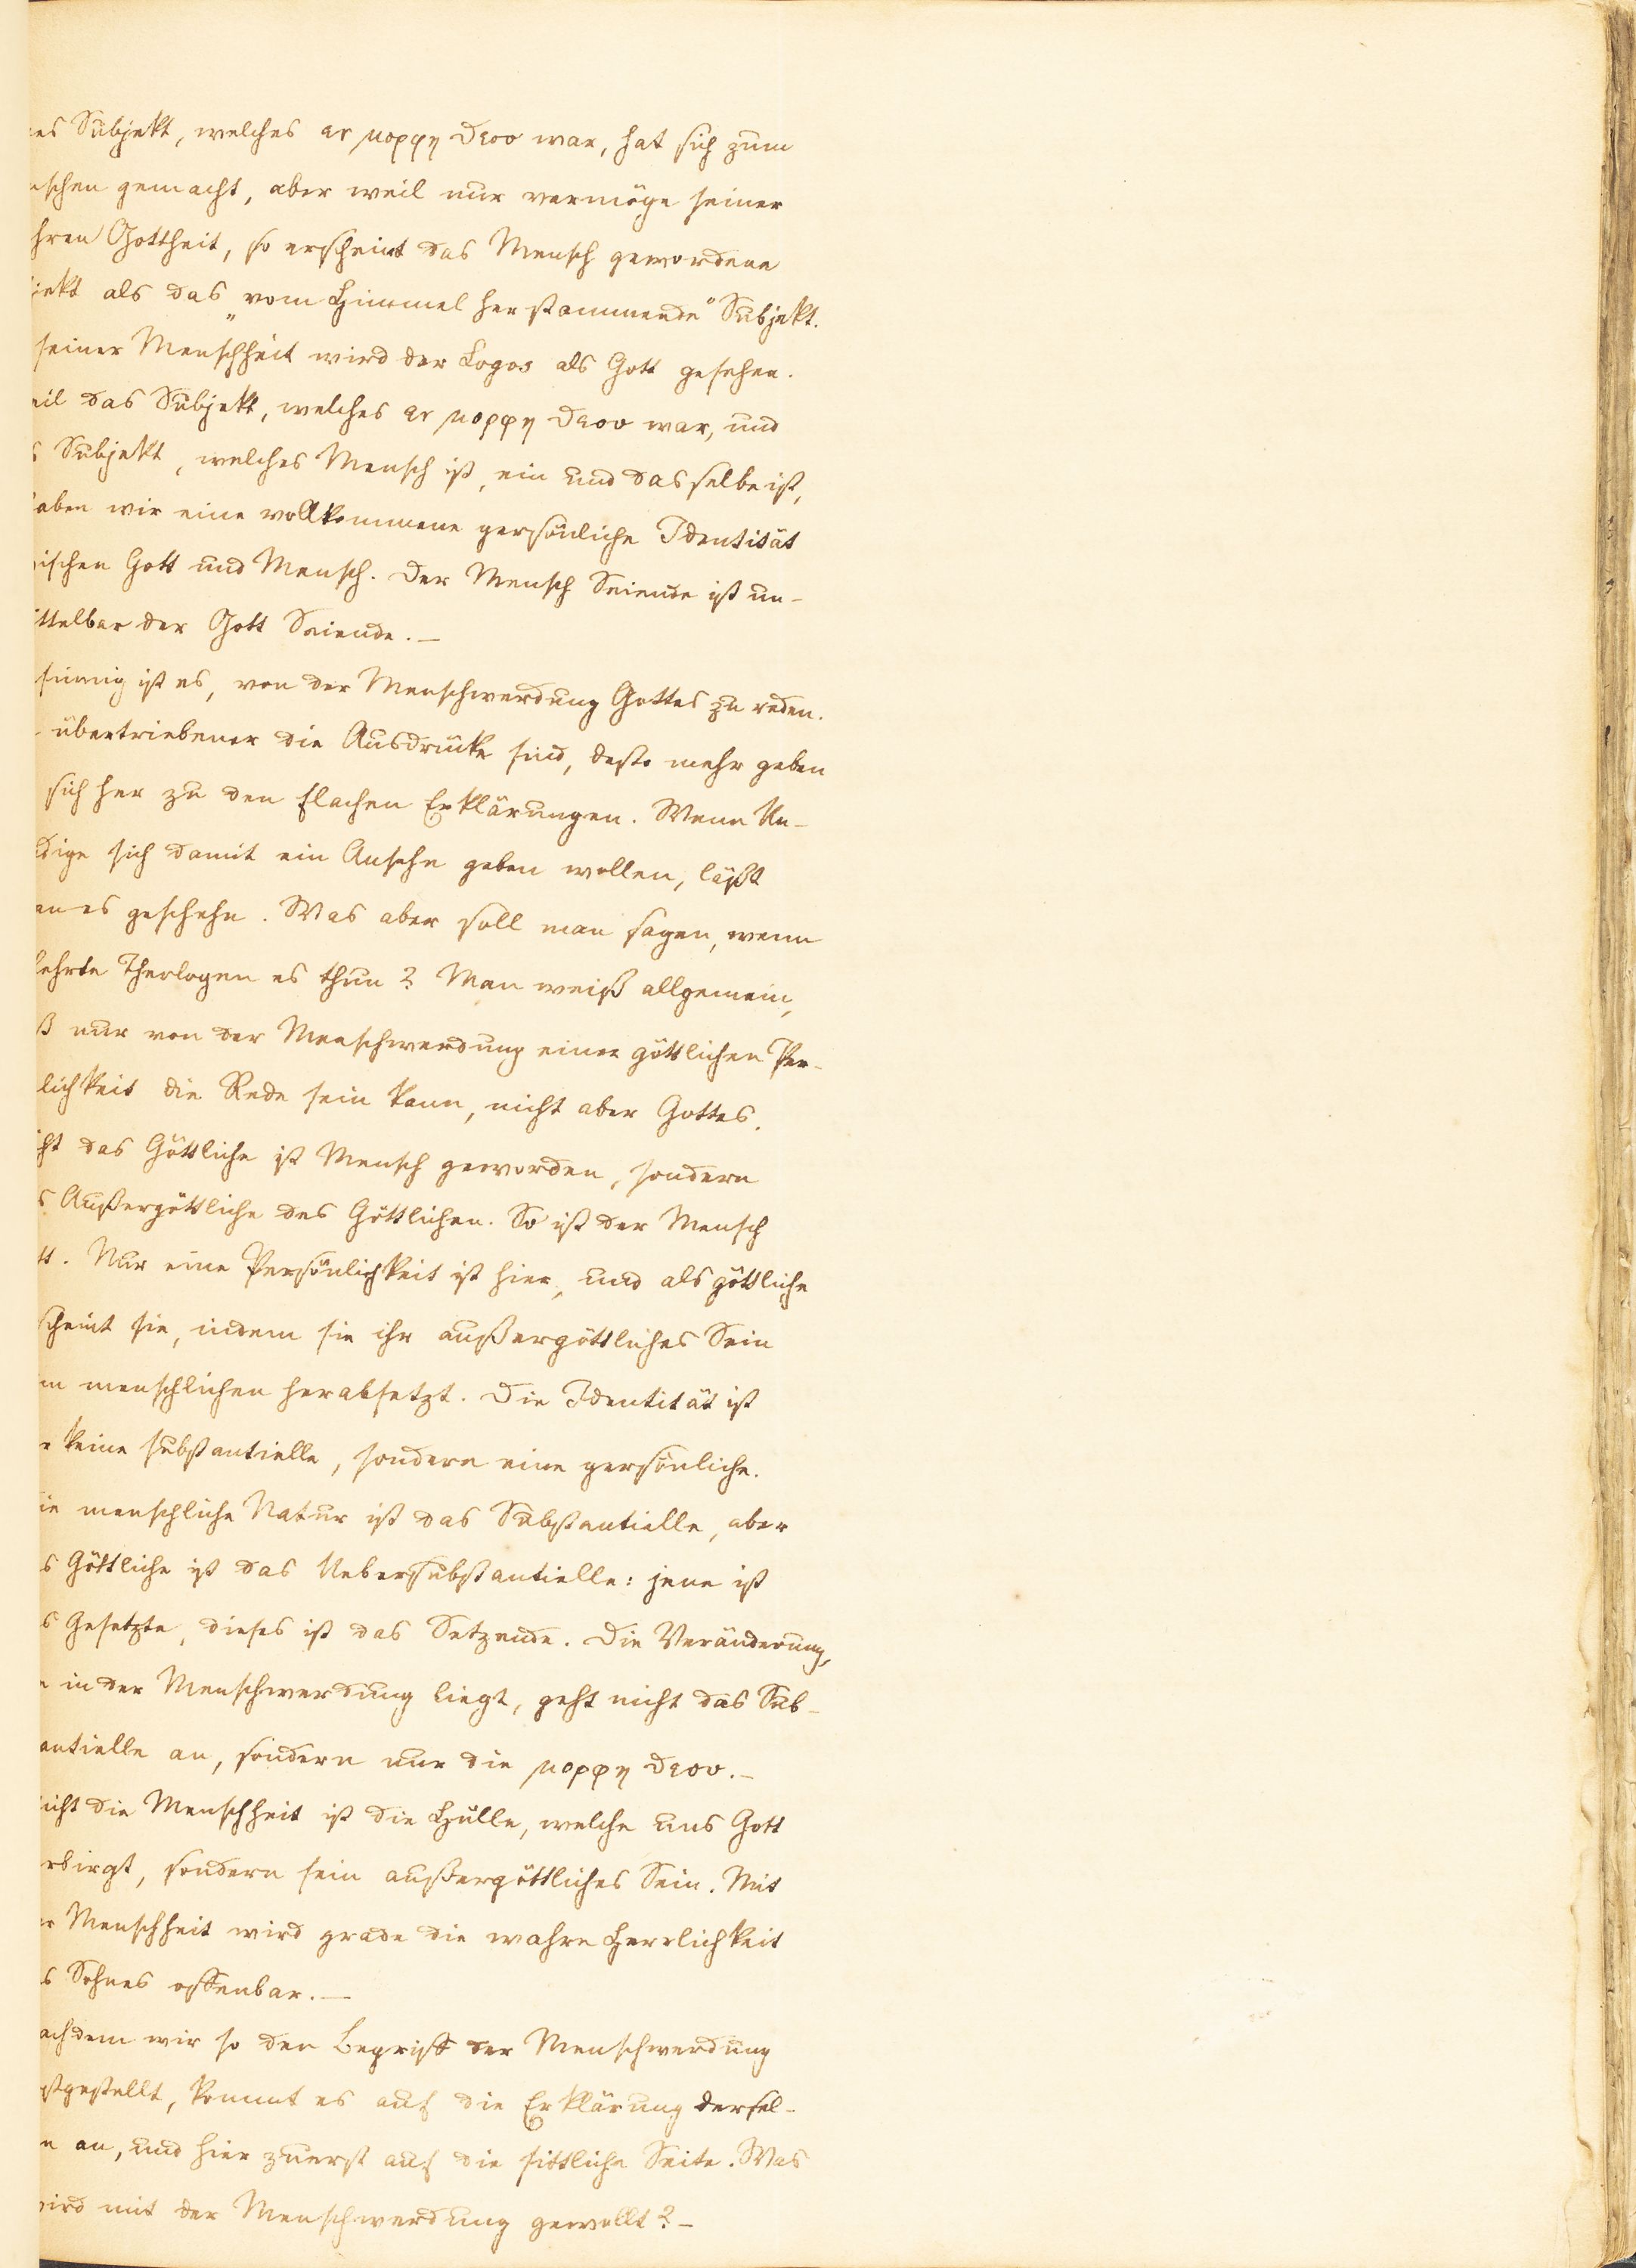 es Subjekt, welches εν μορφῃ Θεου war, hat sich zum
schen gemacht, aber weil nur vermöge seiner
hren Gottheit, so erscheint das Mensch gewordene
jekt als das „vom Himmel herstammende“ Subjekt.
seiner Menschheit wird der Logos als Gott gesehen.
eil das Subjekt, welches εν μορφῃ Θεου war, und
s Subjekt, welches Mensch ist, ein und dasselbe ist,
aben wir eine vollkommene persönliche Identität
ischen Gott und Mensch. Der Mensch Seiende ist un-
ittelbar der Gott Seiende. —
sinnig ist es, von der Menschwerdung Gottes zu reden.
übertriebener die Ausdrücke sind, desto mehr geben
sich her zu den flachen Erklärungen. Wenn Un-
dige sich damit ein Ansehn geben wollen, läßt
an es geschehn. Was aber soll man sagen, wenn
lehrte Theologen es thun? Man weiß allgemein,
ß nur von der Menschwerdung einer göttlichen Per-
lichkeit die Rede sein kann, nicht aber Gottes.
cht das Göttliche ist Mensch geworden, sondern
s Außergöttliche des Göttlichen. So ist der Mensch
tt. Nur eine Persönlichkeit ist hier, und als göttliche
scheint sie, indem sie ihr außergöttliches Sein
m menschlichen herabsetzt. Die Identität ist
r keine substantielle, sondern eine persönliche.
ie menschliche Natur ist das Substantielle, aber
s Göttliche ist das Uebersubstantielle: jene ist
s Gesetzte, dieses ist das Setzende. Die Veränderung,
e in der Menschwerdung liegt, geht nicht das Sub-
antielle an, sondern nur die μορφη Θεου. —
icht die Menschheit ist die Hülle, welche uns Gott
rbirgt, sondern sein außergöttliches Sein. Mit
er Menschheit wird grade die wahre Herrlichkeit
s Sohnes offenbar. —
achdem wir so den Begriff der Menschwerdung
stgestellt, kommt es auf die Erklärung dersel-
n an, und hier zuerst auf die sittliche Seite. Was
wird mit der Menschwerdung gewollt? —